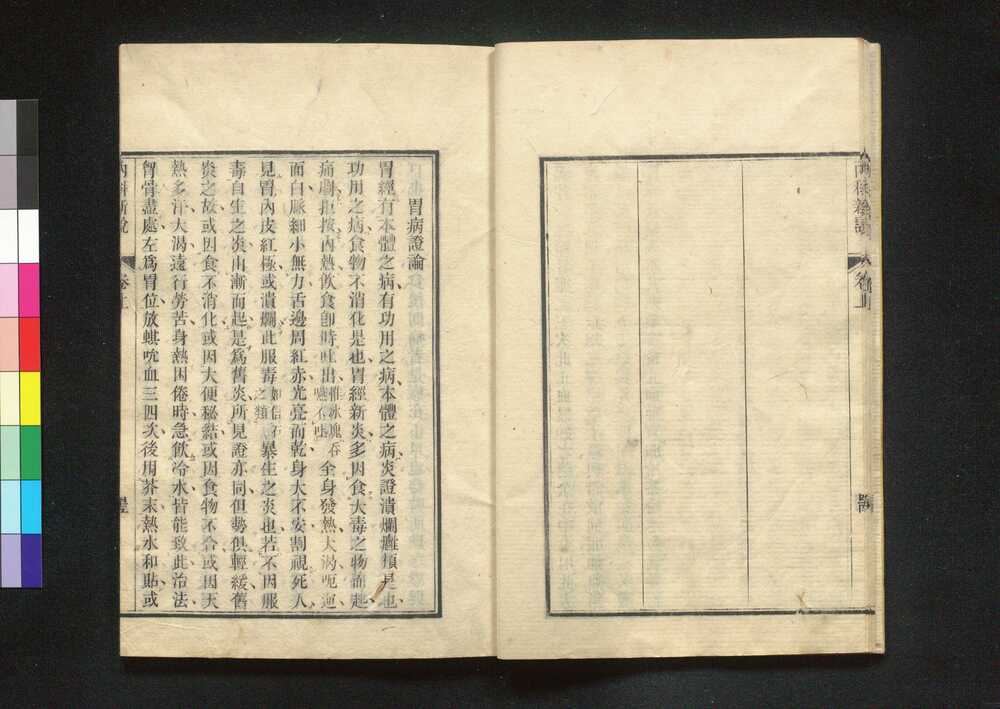 內科新說
卷上
胃病證論
胃經有本體之病有功用之病本體之病炎證潰爛癰類是也
功用之病食物不消化是也胃經新炎多因食大毒之物而起
痛劇拒按內熱飲食即時吐出惟冰塊吞嚥不吐全身發熱大渴呃逆
面白脈細小無力舌邊周紅赤光亮而乾身大不安割視死人
見胃內皮紅極或潰爛此服毒如信石之類暴生之炎也若不因服
毒自生之炎由漸而起是爲舊炎所見證亦同但勢俱輕緩舊
炎之故或因食不消化或因大便秘結或因食物不合或因天
熱多汗大渴遠行勞苦身熱困倦時急飲冷水皆能致此治法
胷骨盡處左爲胃位放蜞吮血三四次後用芥末熱水和貼或
內科新說
卷上